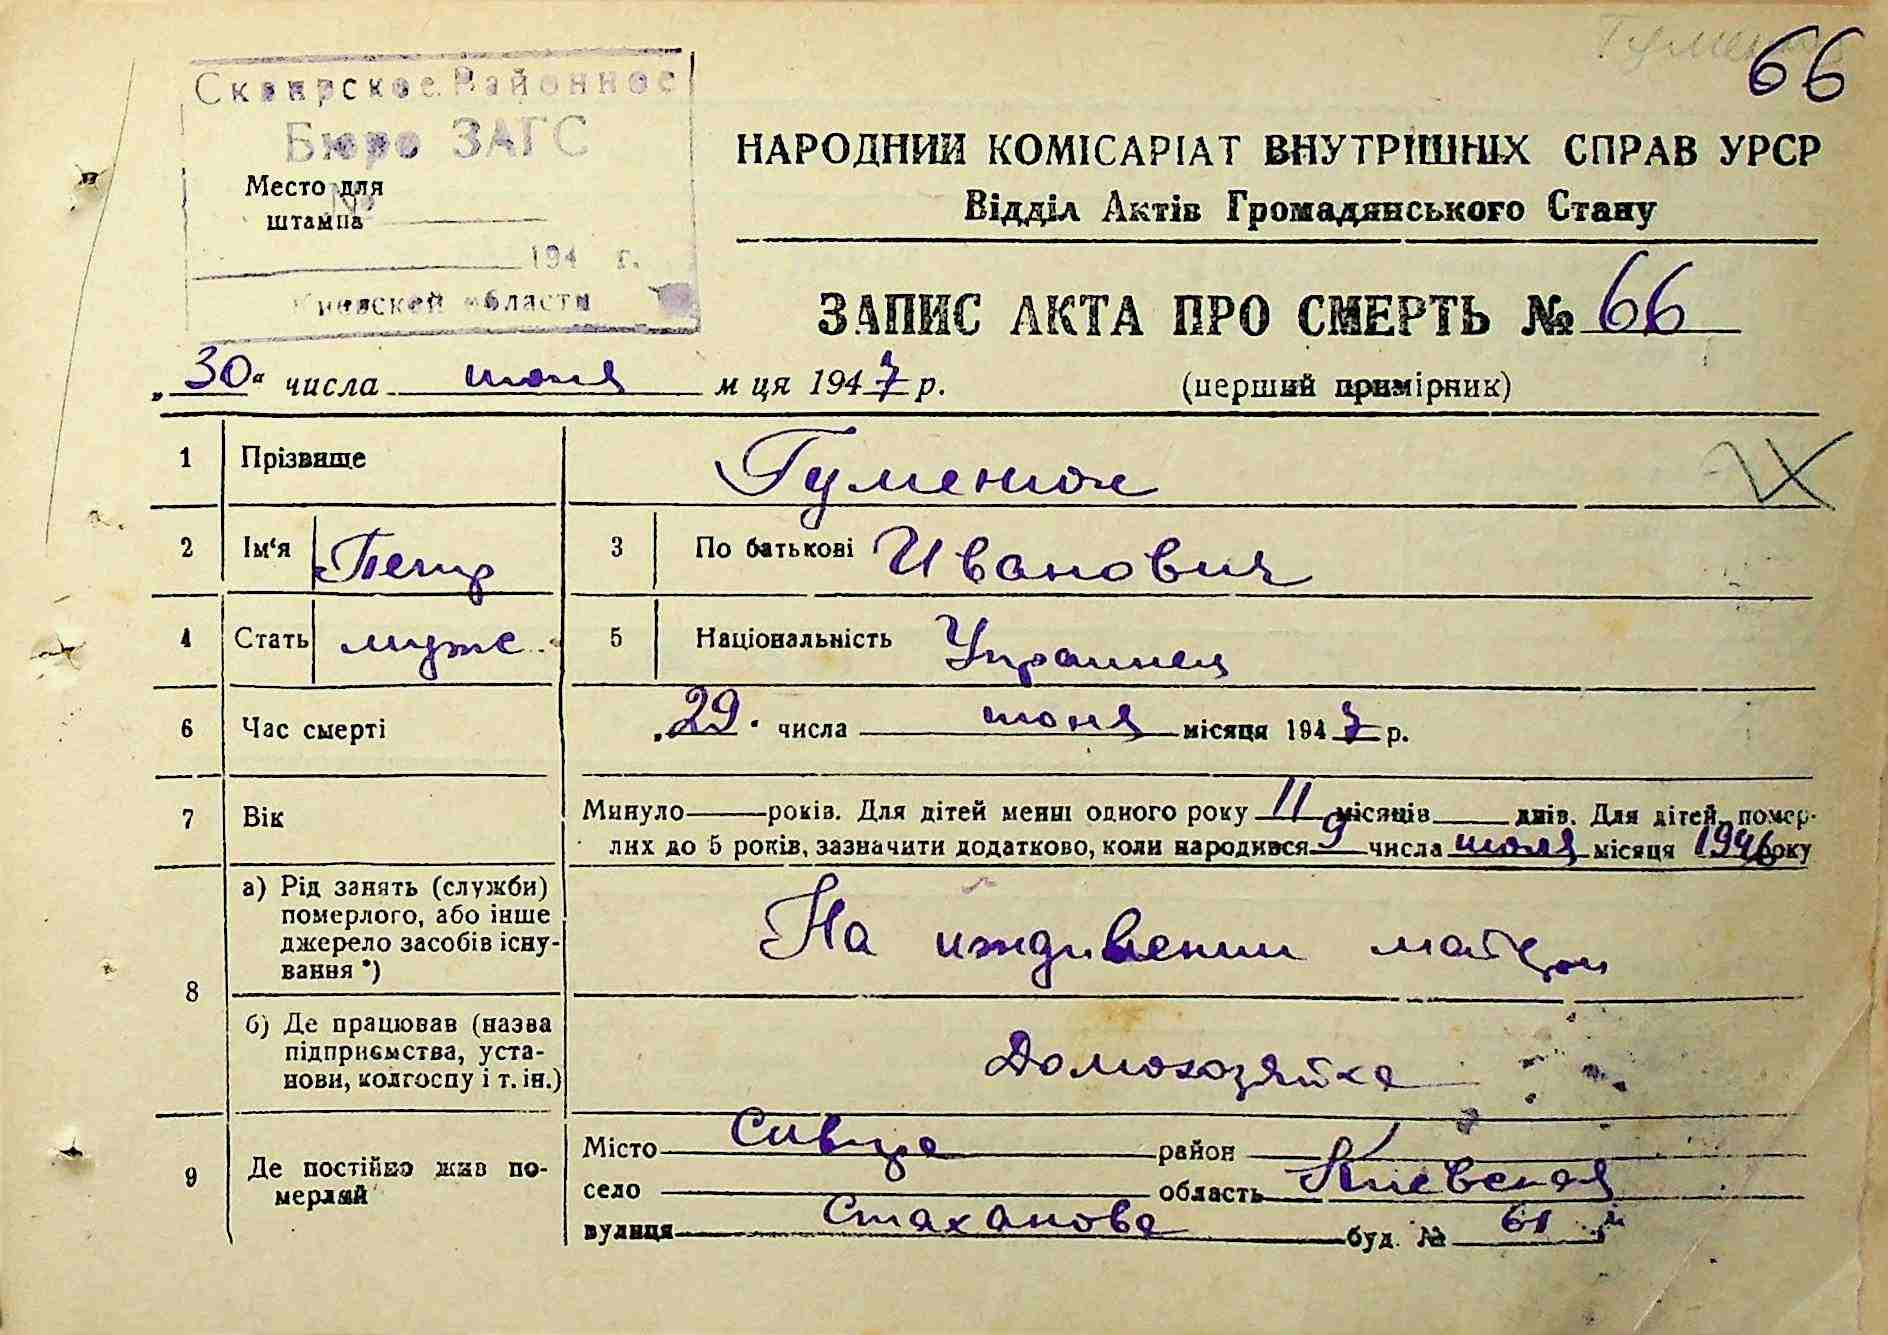 Гуменюк
66
Сквирское Районное
Бюро ЗАГС
Место для
штампа
№
194 г.
Киевской области
НАРОДНИЙ КОМІСАРІАТ ВНУТРІШНІХ СПРАВ УРСР
Відділ Актів Громадянського Стану
ЗАПИС АКТА ПРО СМЕРТЬ № 66
„30“ числа июня м ця 1947 р. (перший примірник)
1 Прізвище Гуменюк
2 Ім'я Петр 3 По батькові Иванович
4 Стать муже 5 Національність Украинец
6 Час смерті „29. числа июня місяця 1947 р.
7 Вік Минуло — років. Для дітей менш одного року 11 місяців — днів. Для дітей, помер-
лих до 5 років, зазначити додатково, коли народився 9 числа июля місяця 1946 року
8 а) Рід занять (служби)
померлого, або інше
джерело засобів існу-
вання *)
На иждивении матери
б) Де працював (назва
підприємства, уста-
нови, колгоспу і т. ін.)
Домохозяйка
9 Де постійно жив по-
мерлий
Місто Сквира район
село область Киевская
вулиця Стаханова буд. № 61